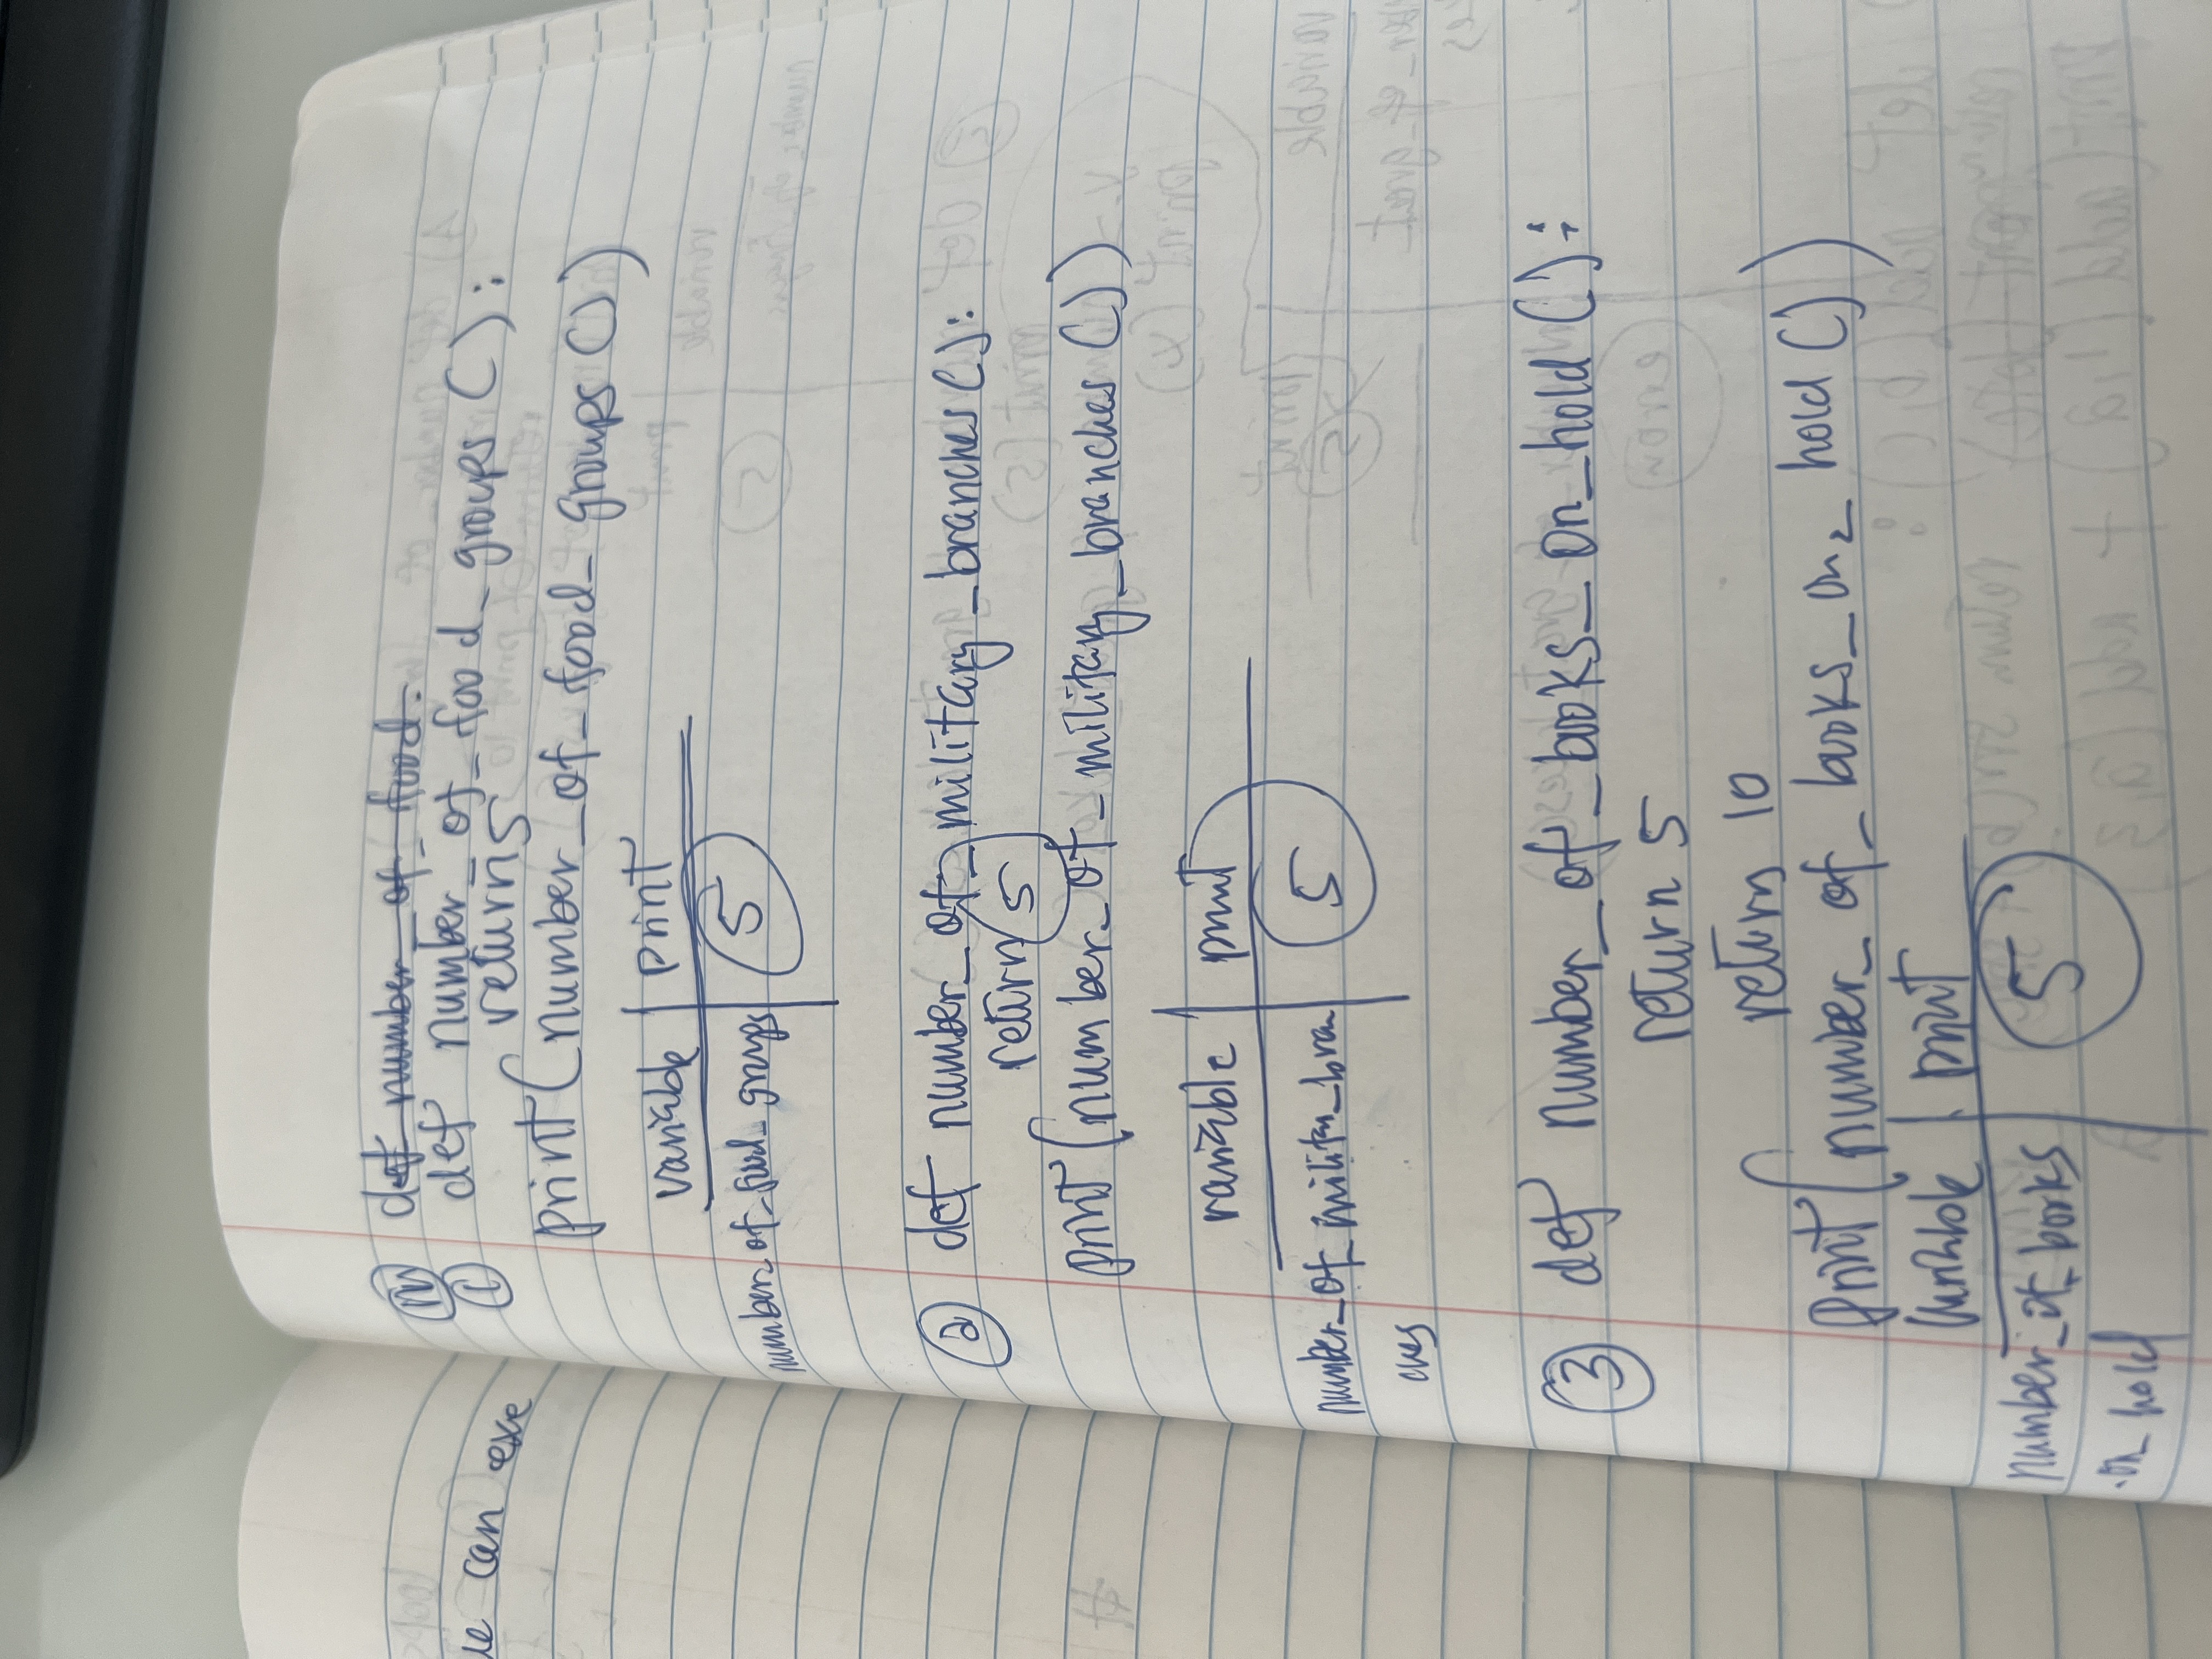 ue can exe
def number_of_food.
① def number_of_food_groups():
return 5
print(number_of_food_groups())
variable | print
number_of_food_groups | 5
② def number_of_military_branches():
return 5
print(number_of_military_branches())
variable | print
number_of_milita_bran | 5
ches
③ def number_of_books_on_hold():
return 5
return 10
print(number_of_books_on_hold())
variable | print
number_of_books | 5
on_hold